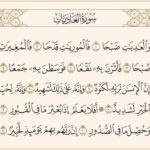 سُورَةُ العَادِيَاتِ
وَٱلْعَٰدِيَٰتِ ضَبْحًا ۝ فَٱلْمُورِيَٰتِ قَدْحًا ۝ فَٱلْمُغِيرَٰتِ
صُبْحًا ۝ فَأَثَرْنَ بِهِۦ نَقْعًا ۝ فَوَسَطْنَ بِهِۦ جَمْعًا ۝
إِنَّ ٱلْإِنسَٰنَ لِرَبِّهِۦ لَكَنُودٌ ۝ وَإِنَّهُۥ عَلَىٰ ذَٰلِكَ لَشَهِيدٌ ۝ وَإِنَّهُۥ لِحُبِّ
ٱلْخَيْرِ لَشَدِيدٌ ۝ أَفَلَا يَعْلَمُ إِذَا بُعْثِرَ مَا فِى ٱلْقُبُورِ ۝
وَحُصِّلَ مَا فِى ٱلصُّدُورِ ۝ إِنَّ رَبَّهُم بِهِمْ يَوْمَئِذٍ لَّخَبِيرٌۢ ۝